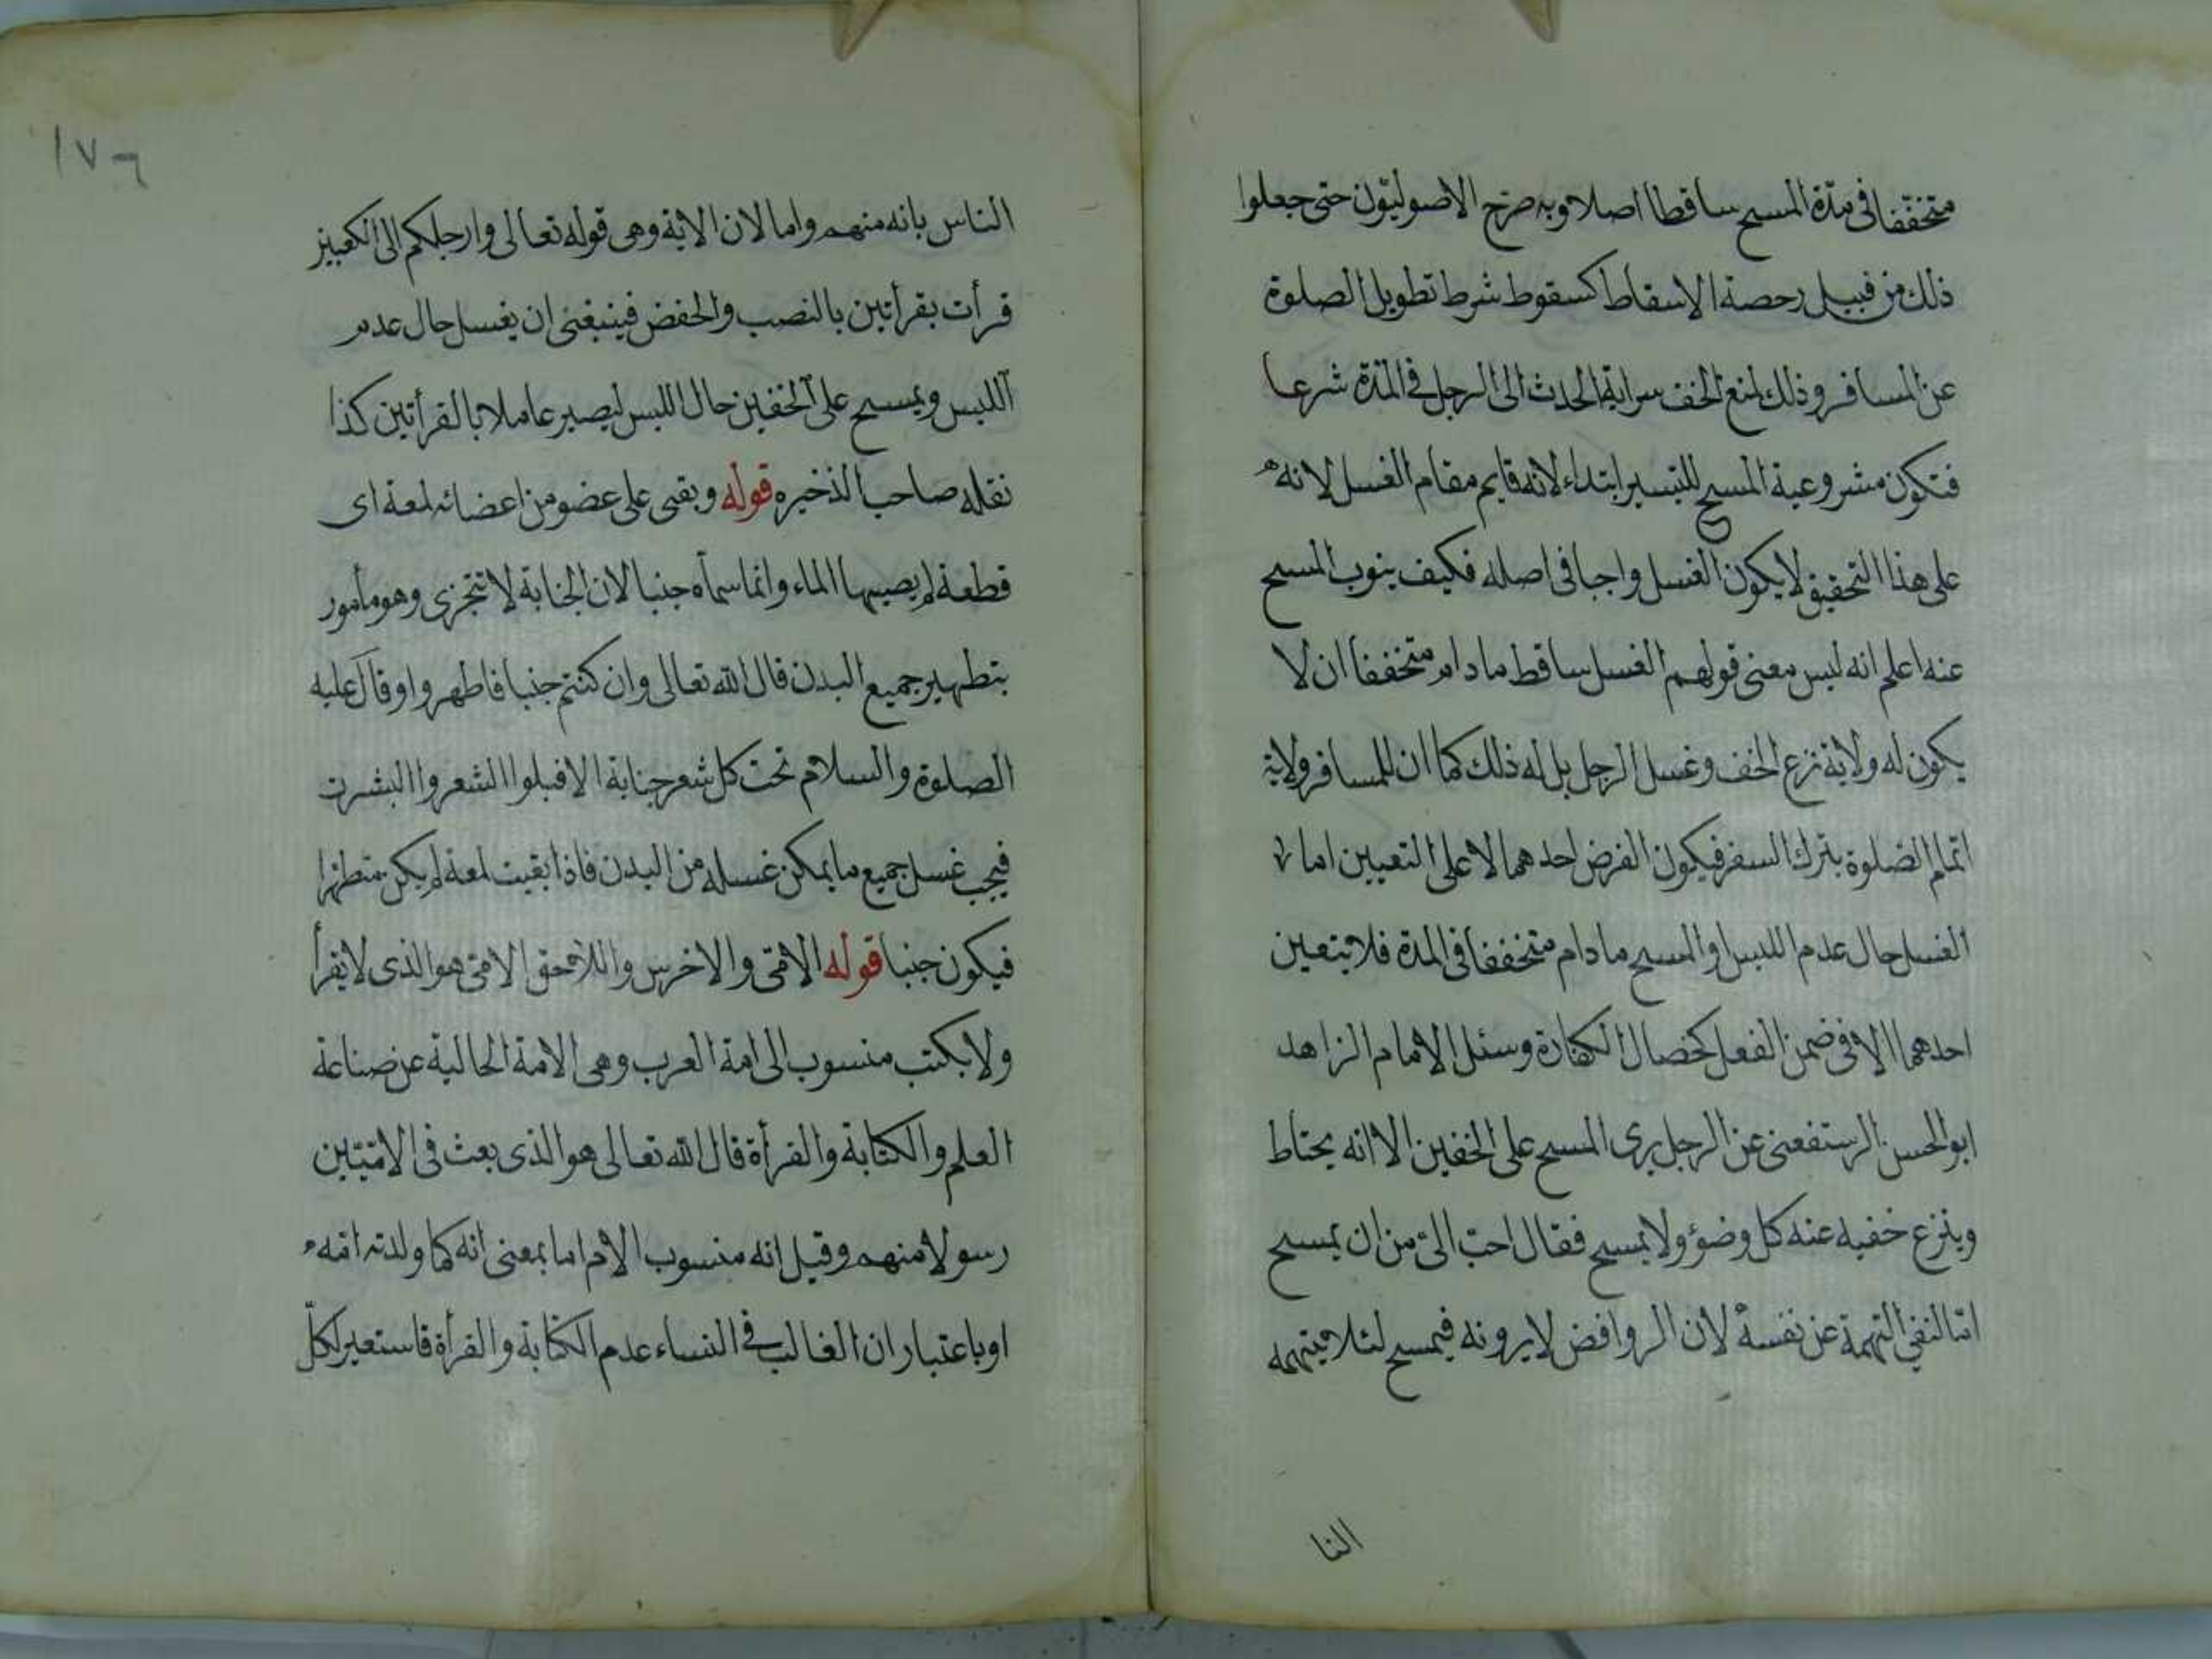 متخففا فى مدّة المسح ساقطا اصلا وبه صرّح الاصوليّون حتى جعلوا
ذلك من قبيل رخصة الاسقاط كسقوط شرط تطويل الصلوة
عن المسافر وذلك لمنع الخف سراية الحدث الى الرجل فى المدّة شرعا
فتكون مشروعية المسح للتيسير ابتداء لانه قايم مقام الغسل لانه
على هذا التحقيق لايكون الغسل واجبا فى اصله فكيف ينوب المسح
عنه اعلم انه ليس معنى قولهم الغسل ساقط مادام متخففا ان لا
يكون له ولاية نزع الخف وغسل الرجل بل له ذلك كما ان للمسافر ولاية
اتمام الصلوة بترك السفر فيكون الفرض احدهما لا على التعيين اما
الغسل حال عدم اللبس او المسح مادام متخففا فى المدة فلا يتعين
احدهما الا فى ضمن الفعل كخصال الكفارة وسئل الامام الزاهد
ابو الحسن الرستفعنى عن الرجل يرى المسح على الخفين الا انه يحتاط
وينزع خفيه عنه كل وضؤ ولا يمسح فقال احبّ الىّ من ان يمسح
امّا لنفى التهمة عن نفسه لان الروافض لا يرونه فيمسح لئلا يتهمه
النا
١٧٦
الناس بانه منهم واما لان الاية وهى قوله تعالى وارجلكم الى الكعبين
قرأت بقرأتين بالنصب والخفض فينبغى ان يغسل حال عدم
اللبس ويمسح على الخفين حال اللبس ليصير عاملا بالقرأتين كذا
نقله صاحب الذخيره قوله وبقى على عضو من اعضائه لمعة اى
قطعة لم يصيبها الماء وانما سماه جنبا لان الجنابة لا تتجزى وهو مأمور
بتطهير جميع البدن قال الله تعالى وان كنتم جنبا فاطهروا وقال عليه
الصلوة والسلام تحت كل شعر جنابة الا فبلوا الشعر واالبشرت
فيجب غسل جميع مايمكن غسله من البدن فاذا بقيت لمعة لم يكن متطهرا
فيكون جنبا قوله الامّى والاخرس واللاحق الامى هو الذى لايقرأ
ولايكتب منسوب الى امة العرب وهى الامة الخالية عن صناعة
العلم والكتابة والقرأة قال الله تعالى هو الذى بعث فى الامّيّين
رسولا منهم وقيل انه منسوب الام اما بمعنى انه كما ولدته امّه
او باعتبار ان الغالب فى النساء عدم الكتابة والقرأة فاستعير لكلّ